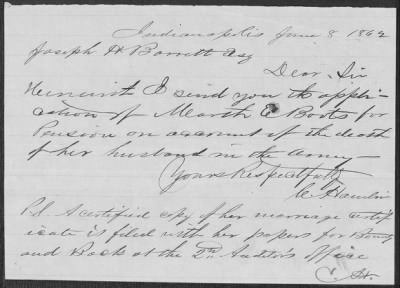 Indianapolis June 8 1862
Joseph H Barrett Esq
Dear Sir
Herewith I send you the appli-
cation of Martha E Boots for
Pension on account of the death
of her husband in the Army -
Yours Respectfully
C. Hamlin
P.S. A certified copy of her marriage certif
icate is filed with her papers for Bounty
and Back at the 2d Auditor's Office
C. H.